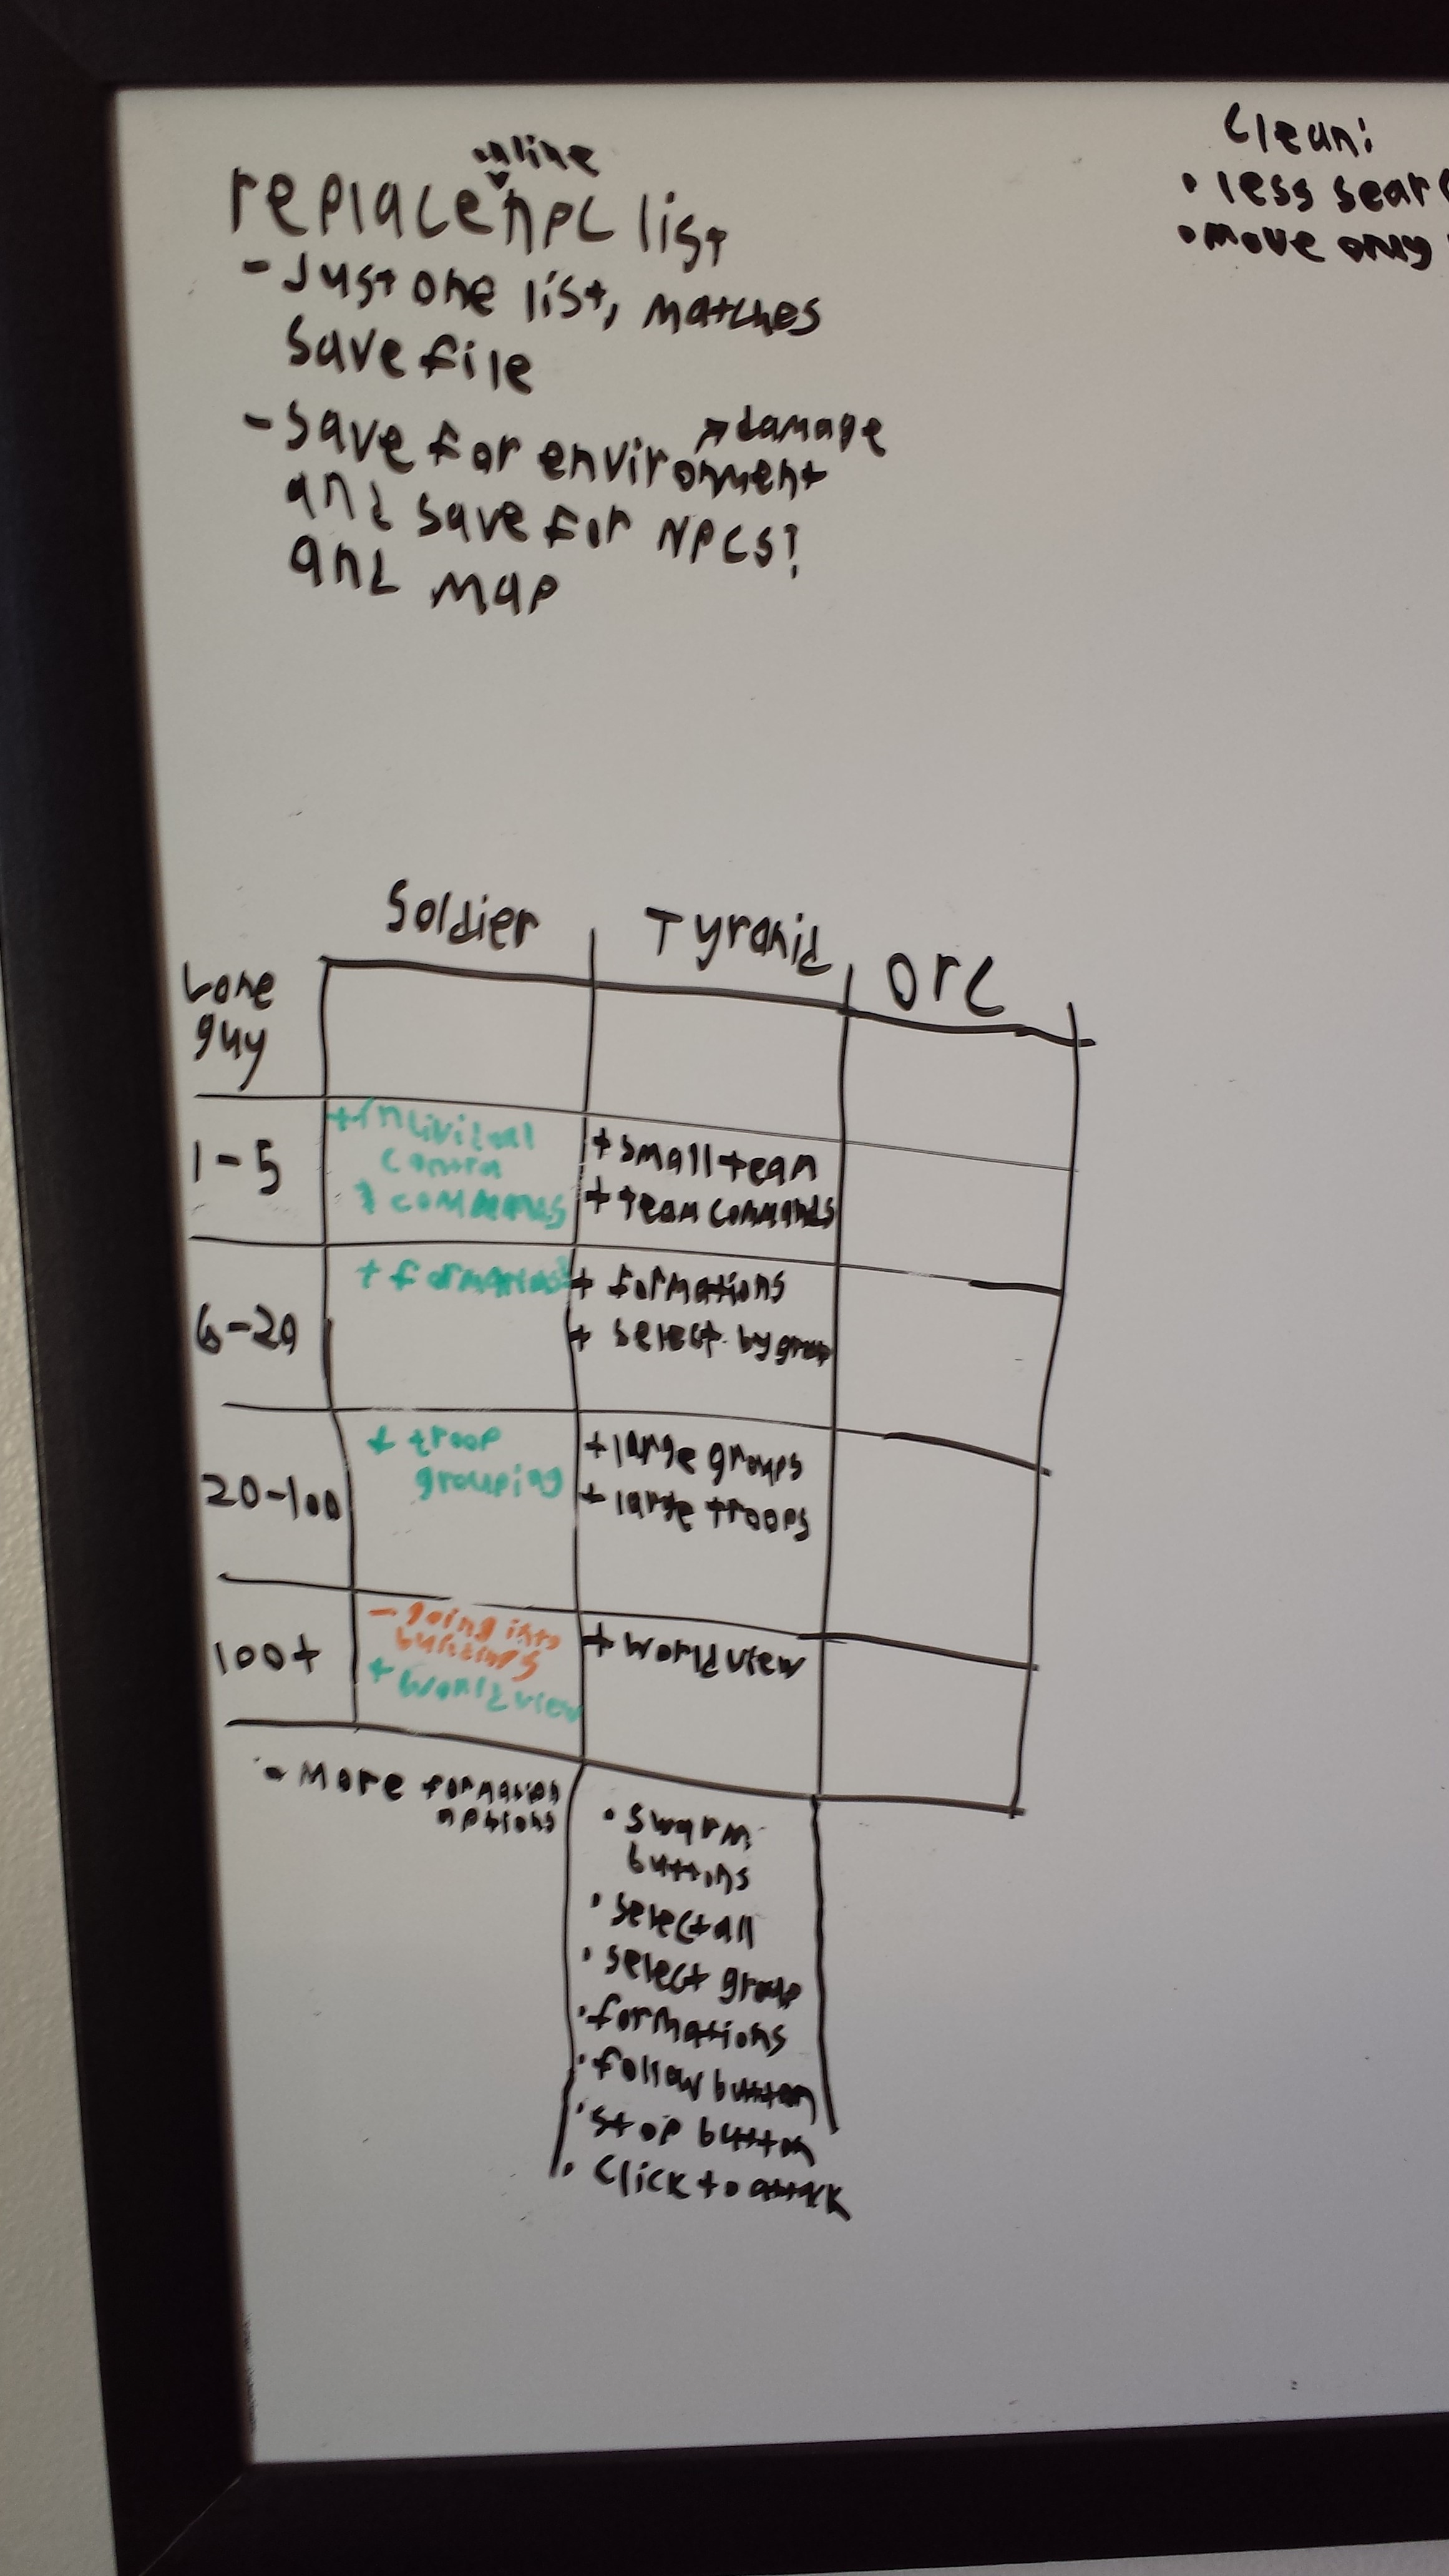 inline
replace npc list
- Just one list, matches
save file
- save for environment
→ damage
and save for NPCs?
and map
Clean:
• less sear
• move only
Soldier Tyranid Orc
Lone
guy
1-5
+ individual
control
& commands
+ small team
+ team commands
6-20
+ formations
+ formations
+ select by group
20-100
+ troop
grouping
+ large groups
+ large troops
100+
- going into
buildings
+ world view
+ world view
- More formation
options
• swarm
buttons
• select all
• select group
• formations
• follow button
• stop button
• click to attack